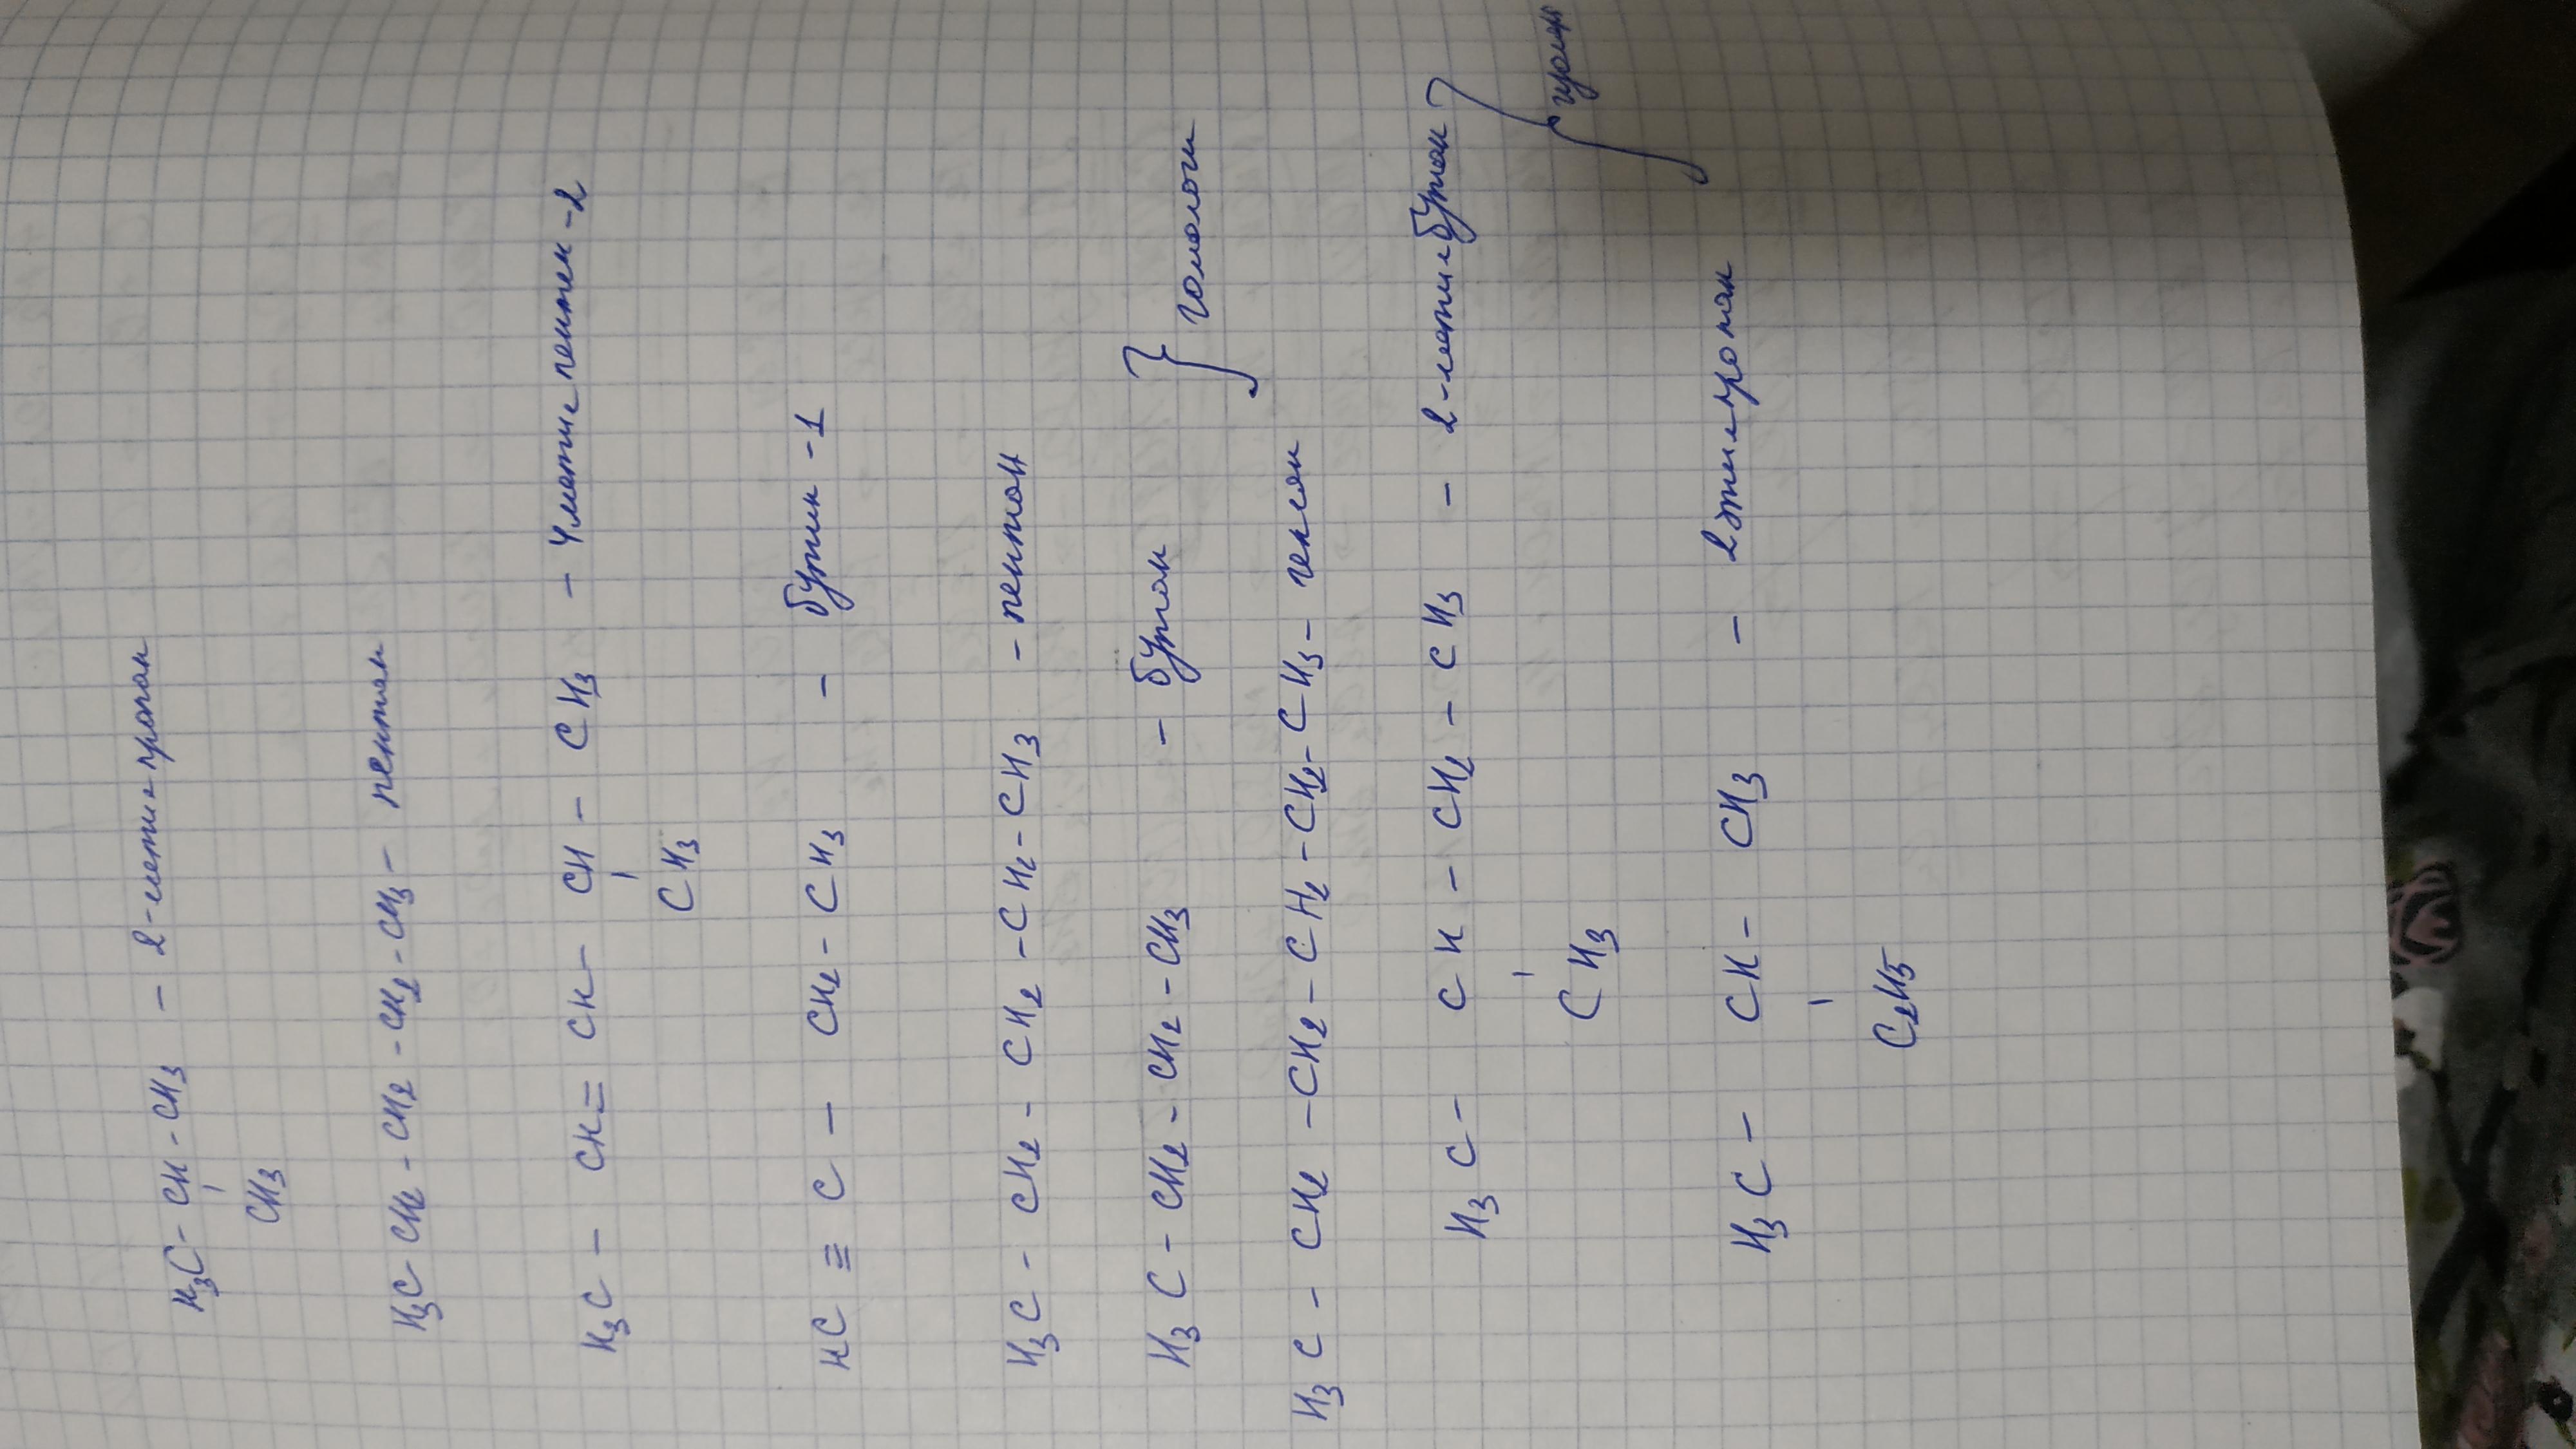 H₃C - CH - CH₃ - 2-метилпропан
CH₃
H₃C - CH₂ - CH₂ - CH₂ - CH₃ - пентан
H₃C - CH = CH - CH - CH₃ - 4метилпентен-2
CH₃
HC ≡ C - CH₂ - CH₃ - бутин-1
H₃C - CH₂ - CH₂ - CH₂ - CH₃ - пентан
H₃C - CH₂ - CH₂ - CH₃ - бутан } гомологи
H₃C - CH₂ - CH₂ - CH₂ - CH₂ - CH₃ - гексан
H₃C - CH - CH₂ - CH₃ - 2-метилбутан }
CH₃
H₃C - CH - CH₃ - 2этилпропан
C₂H₅